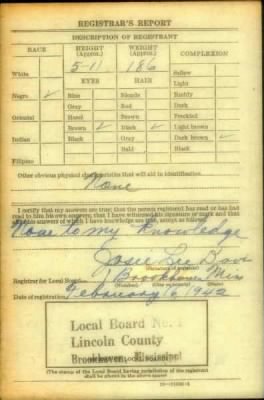 REGISTRAR'S REPORT
DESCRIPTION OF REGISTRANT
RACE HEIGHT (Approx.) WEIGHT (Approx.) COMPLEXION
White 5-11 186 Sallow
EYES HAIR Light
Negro ✓ Blue Blonde Ruddy
Gray Red Dark
Oriental Hazel Brown Freckled
Brown ✓ Black ✓ Light brown
Indian Black Gray Dark brown ✓
Bald Black
Filipino
Other obvious physical characteristics that will aid in identification
None
I certify that my answers are true; that the person registered has read or has had
read to him his own answers; that I have witnessed his signature or mark and that
all of his answers of which I have knowledge are true, except as follows:
None to my knowledge
Josie Lee
Registrar for Local Board 1 Brookhaven Miss
(Number) (City or county) (State)
Date of registration February 16 1942
Local Board No.
Lincoln County
Brookhaven, Mississippi
(The stamp of the Local Board having jurisdiction of the registrant
shall be placed in the above space)